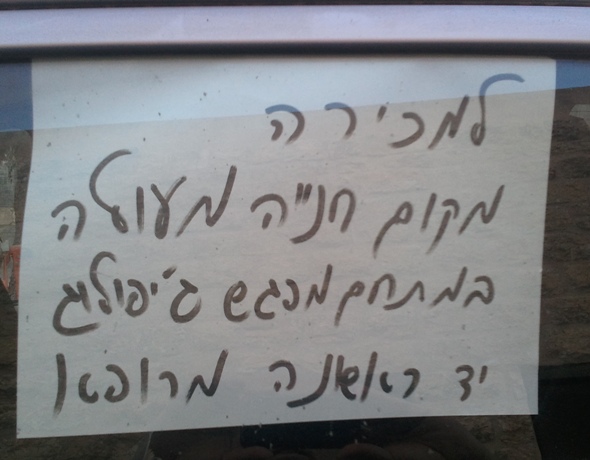 למכירה
מקום חנייה מעולה
במתחם מפגש ג'יפולוג
יד ראשונה מרופאו